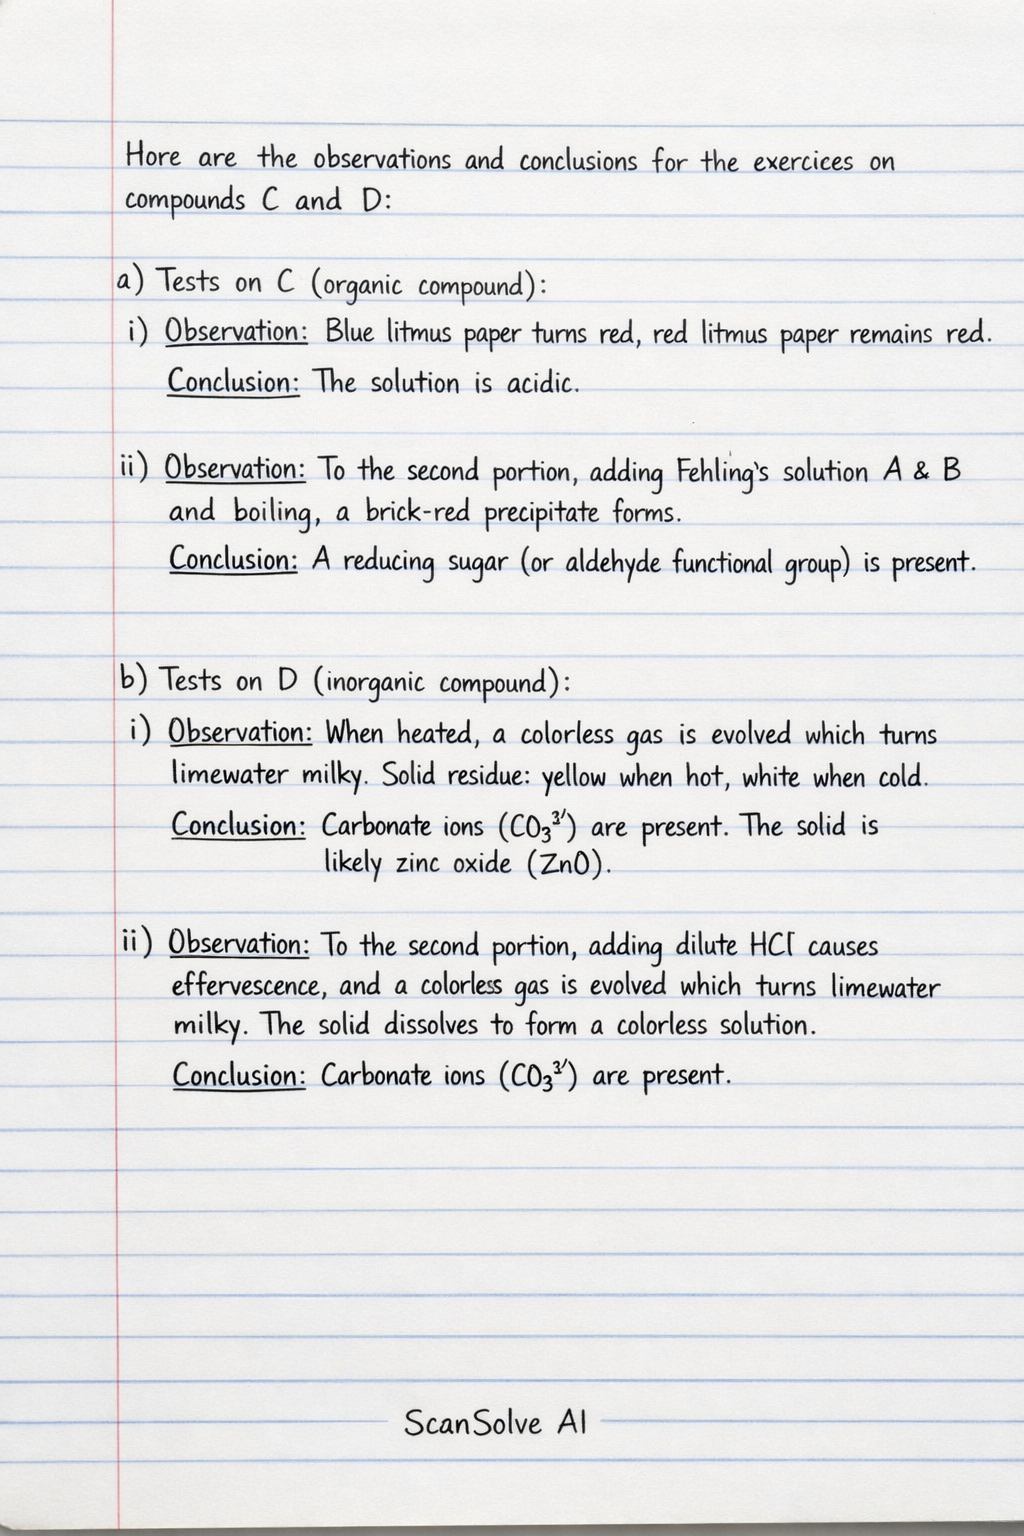 Hore are the observations and conclusions for the exercices on
compounds C and D:
a) Tests on C (organic compound):
i) Observation: Blue litmus paper turns red, red litmus paper remains red.
Conclusion: The solution is acidic.
ii) Observation: To the second portion, adding Fehling's solution A & B
and boiling, a brick-red precipitate forms.
Conclusion: A reducing sugar (or aldehyde functional group) is present.
b) Tests on D (inorganic compound):
i) Observation: When heated, a colorless gas is evolved which turns
limewater milky. Solid residue: yellow when hot, white when cold.
Conclusion: Carbonate ions (CO₃³′) are present. The solid is
likely zinc oxide (ZnO).
ii) Observation: To the second portion, adding dilute HCl causes
effervescence, and a colorless gas is evolved which turns limewater
milky. The solid dissolves to form a colorless solution.
Conclusion: Carbonate ions (CO₃³′) are present.
ScanSolve AI